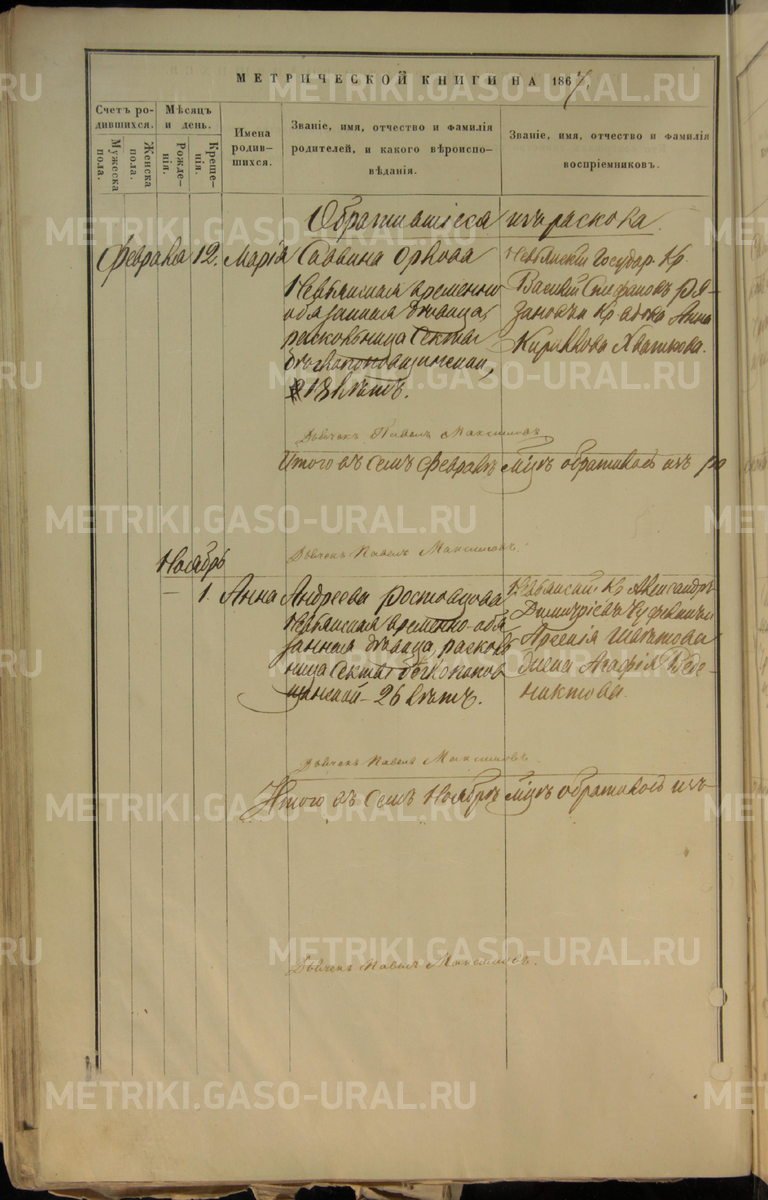 МЕТРИЧЕСКОЙ КНИГИ НА 186
Счетъ ро-
дившихся.
Мужеска
пола.
Женска
пола.
Мѣсяцъ
и день.
Рожде-
нія.
Креще-
нія.
Имена
родив-
шихся.
Званіе, имя, отчество и фамилія
родителей, и какого вѣроиспо-
вѣданія.
Званіе, имя, отчество и фамилія
воспріемниковъ.
Обратившіеся изъ раскола.
Февраля 12. Марія
Саввина Орлова
Невьянская временно
обязанная дѣвица,
раскольница секты
13 лѣтъ.
Невьянскій Государ. Кр.
Василій Стефановъ Ря-
зановъ и Кр дѣвка Анна
Кириллова
Дьячекъ Павелъ Максимовъ
Итого въ семъ Февралѣ мцѣ обратилось изъ ра
Дьячекъ Павелъ Максимовъ.
Ноябрь
— 1. Анна
Андреева Ростовцова
Невьянская временно обя
занная дѣвица расколь
ница секты
26 лѣтъ.
Невьянскій Кр Александръ
Димитріевъ
Арсенія
Агафія Вене-
диктова.
Дьячекъ Павелъ Максимовъ.
Итого въ семъ Ноябрѣ мцѣ обратилось изъ
Дьячекъ Павелъ Максимовъ.
METRIKI.GASO-URAL.RU